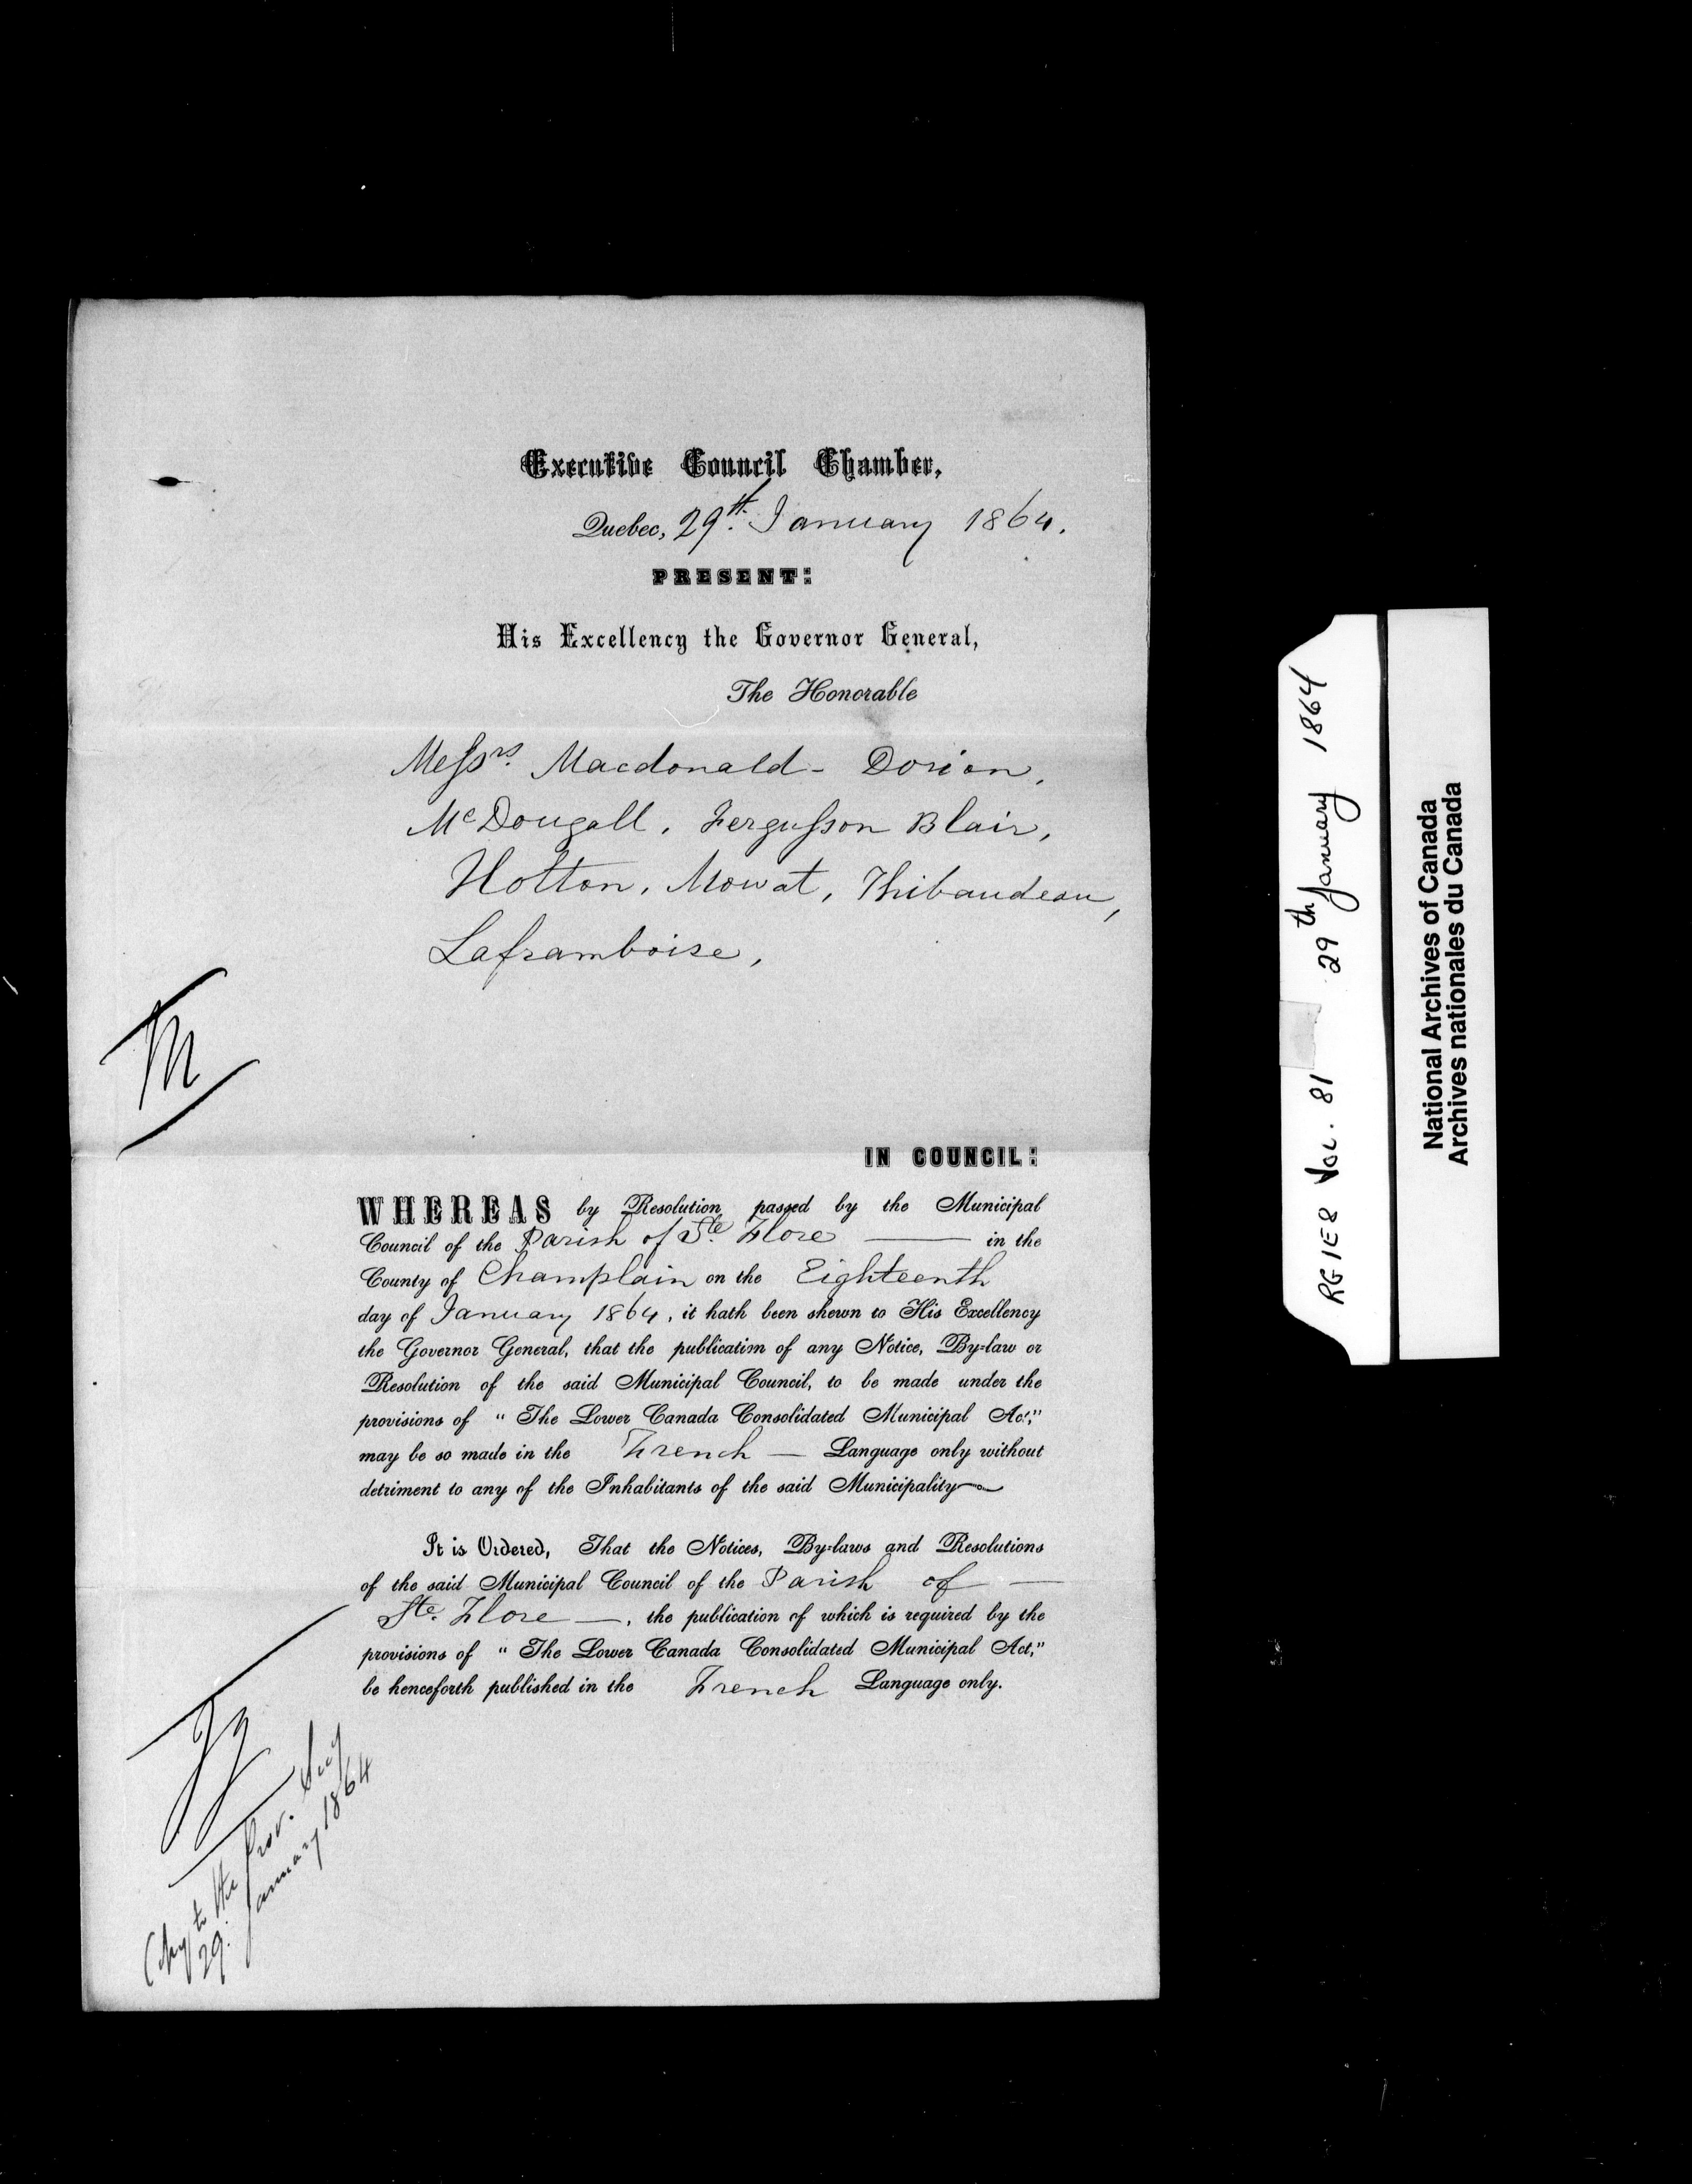 Executive Council Chamber,
Quebec, 29th. January 1864.
PRESENT:
His Excellency the Governor General,
The Honorable
Messrs. Macdonald - Dorion,
McDougall, Fergusson Blair,
Holton, Mowat, Thibaudeau,
Laframboise,
M
IN COUNCIL:
WHEREAS by Resolution passed by the Municipal
Council of the Parish of Ste Flore — in the
County of Champlain on the Eighteenth
day of January 1864, it hath been shewn to His Excellency
the Governor General, that the publication of any Notice, By-law or
Resolution of the said Municipal Council, to be made under the
provisions of "The Lower Canada Consolidated Municipal Act,"
may be so made in the French — Language only without
detriment to any of the Inhabitants of the said Municipality
It is Ordered, That the Notices, By-laws and Resolutions
of the said Municipal Council of the Parish of —
Ste. Flore —, the publication of which is required by the
provisions of "The Lower Canada Consolidated Municipal Act,"
be henceforth published in the French Language only.
Copy to the Prov. Secy
29. January 1864
RG 1E8 VOL. 81 29th January 1864
National Archives of Canada
Archives nationales du Canada